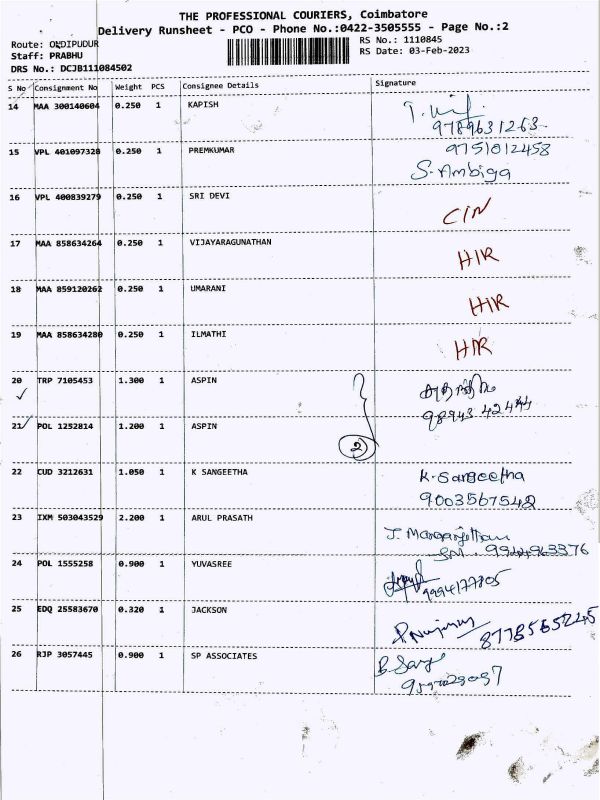 THE PROFESSIONAL COURIERS, Coimbatore
Delivery Runsheet - PCO - Phone No.:0422-3505555 - Page No.:2
Route: ONDIPUDUR
RS No.: 1110845
Staff: PRABHU
RS Date: 03-Feb-2023
DRS No.: DCJB111084502
S No Consignment No Weight PCS Consignee Details Signature
14 MAA 300140604 0.250 1 KAPISH
9789631263
15 VPL 401097328 0.250 1 PREMKUMAR 9751012458
S. Ambiga
16 VPL 400839279 0.250 1 SRI DEVI
C/N
17 MAA 858634264 0.250 1 VIJAYARAGUNATHAN
H/R
18 MAA 859120262 0.250 1 UMARANI
H/R
19 MAA 858634280 0.250 1 ILMATHI
H/R
20 TRP 7105453 1.300 1 ASPIN
98943 42444
21 POL 1252814 1.200 1 ASPIN
2
22 CUD 3212631 1.050 1 K SANGEETHA K. Sangeetha
9003567542
23 IXM 503043529 2.200 1 ARUL PRASATH
9944963376
24 POL 1555258 0.900 1 YUVASREE
9994177805
25 EDQ 25583670 0.320 1 JACKSON
8778565245
26 RJP 3057445 0.900 1 SP ASSOCIATES